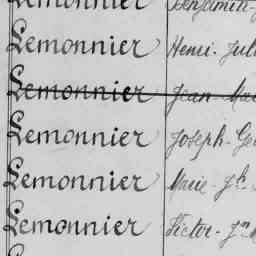 Lemonnier Benjamin-
Lemonnier Henri-Jul
Lemonnier Jean-Mar
Lemonnier Joseph-Ge
Lemonnier Marie-Jh
Lemonnier Victor-Jn M